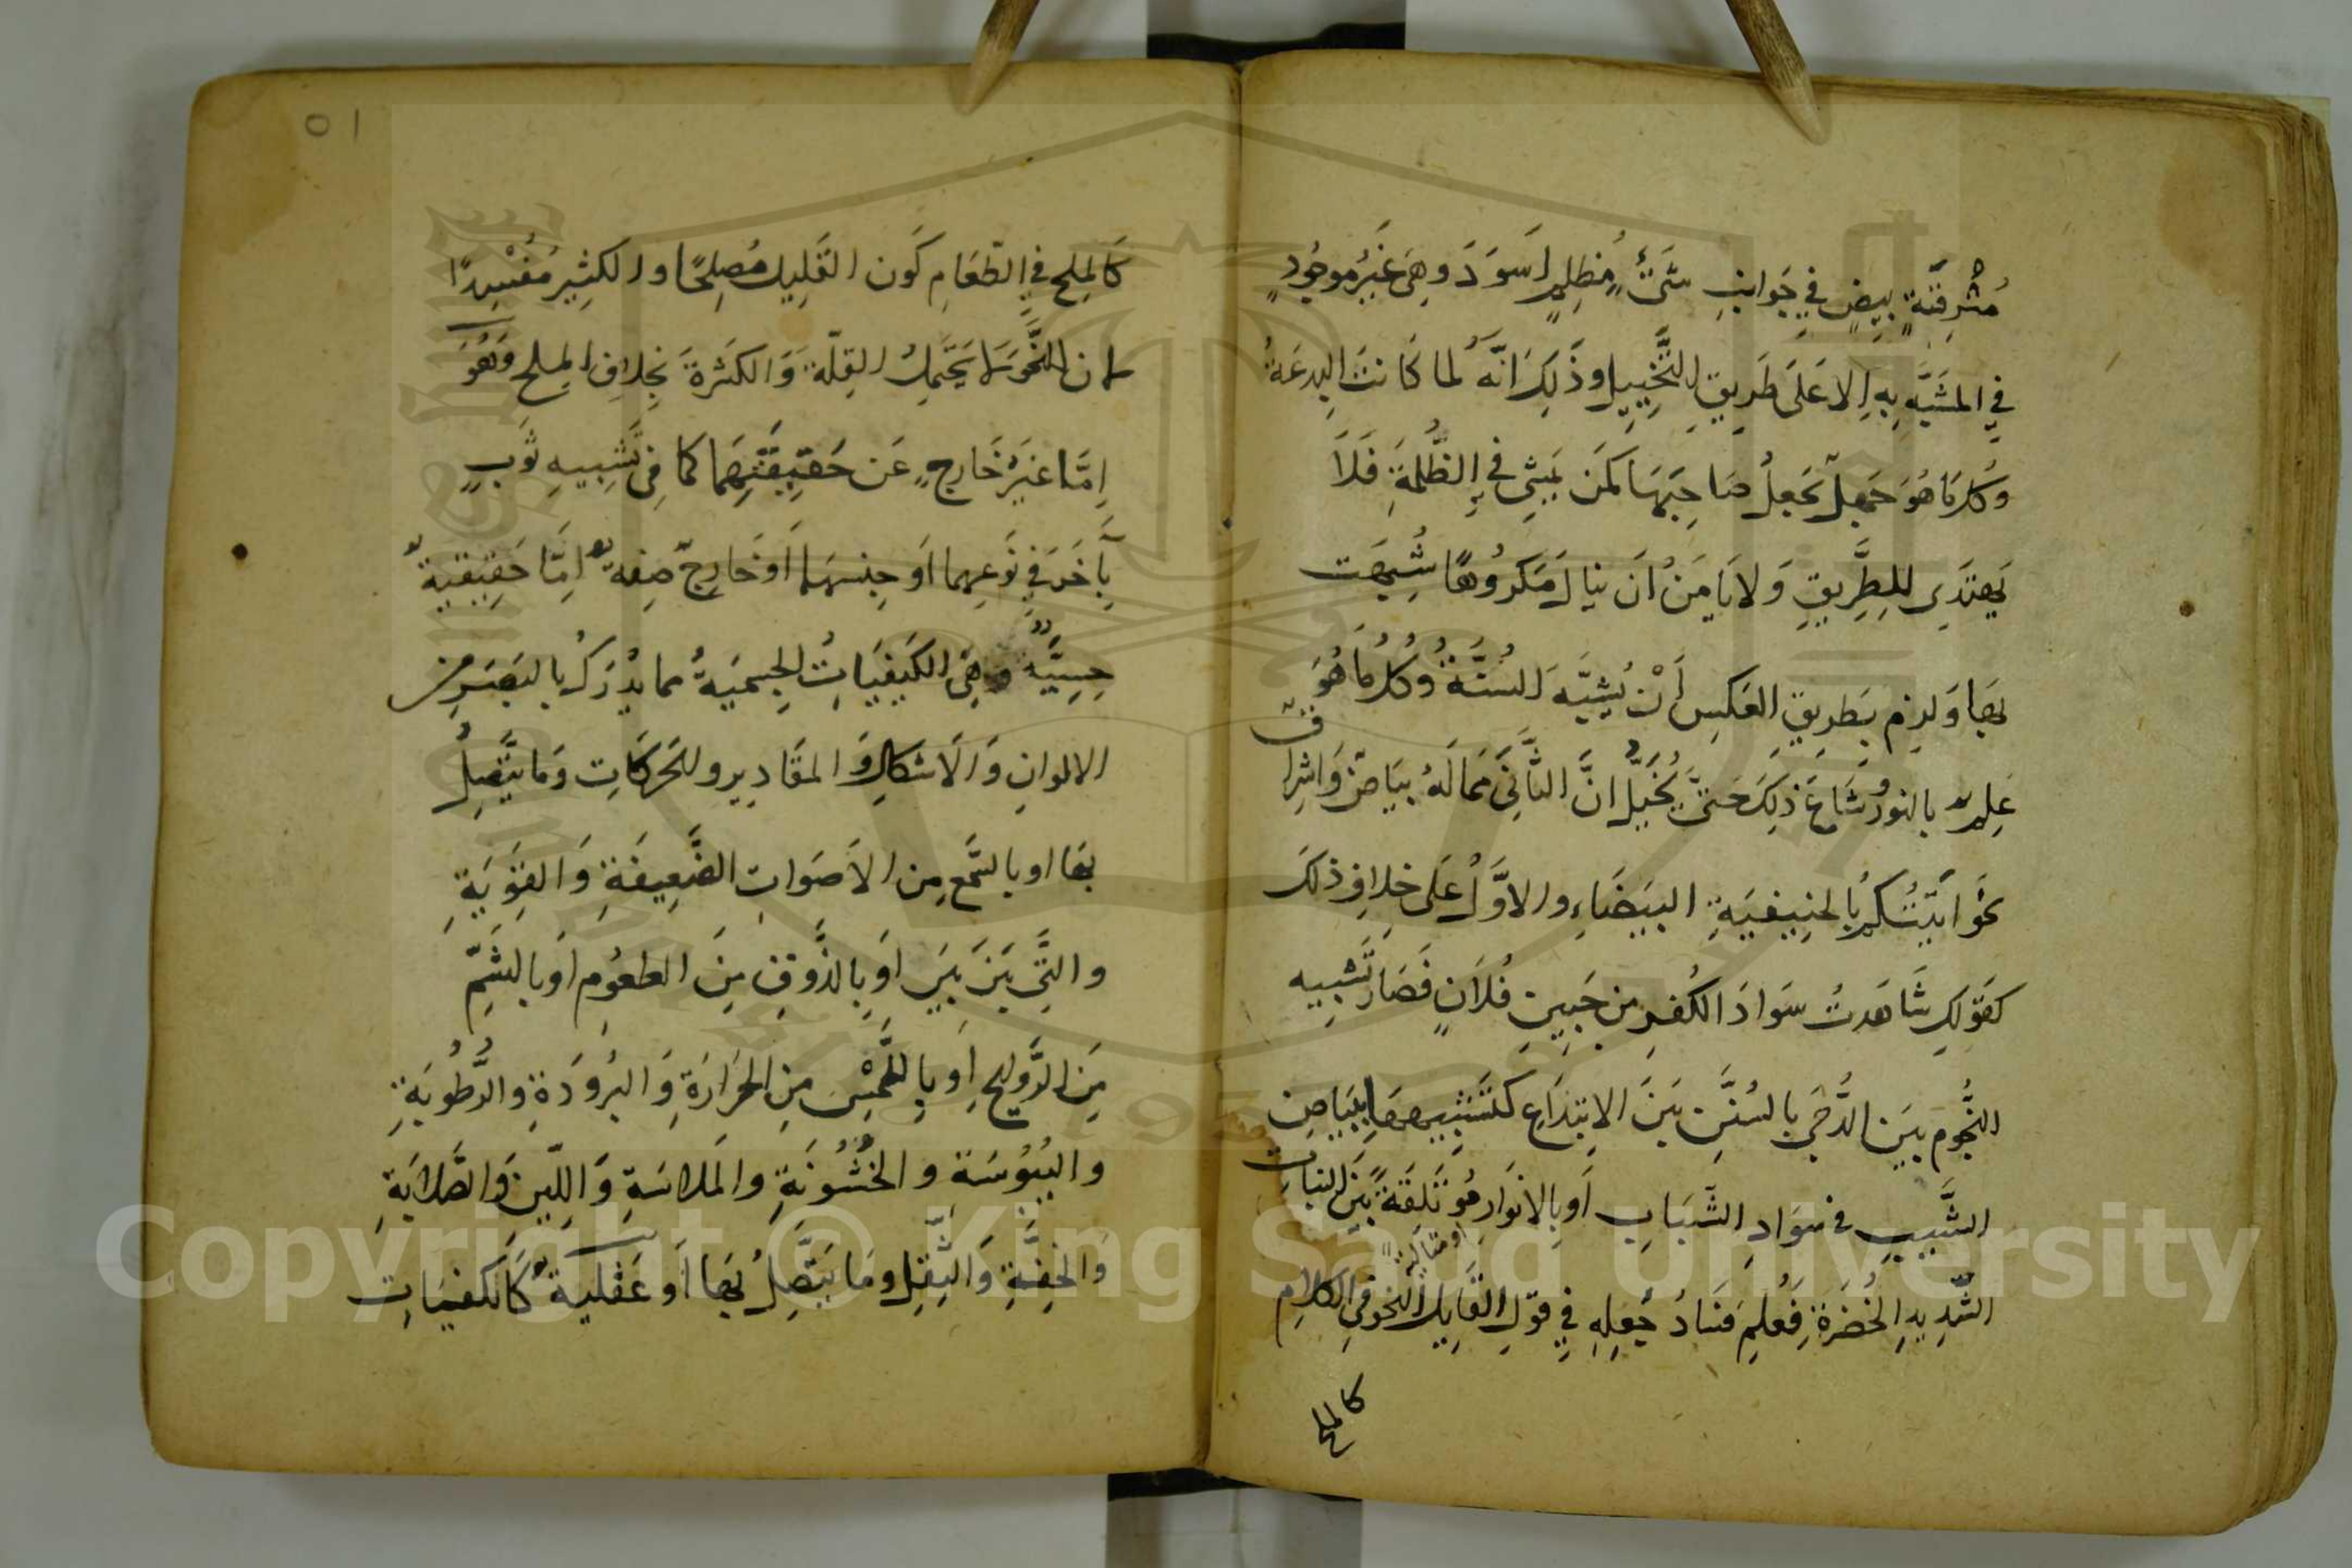 مُشْرِقَةٍ بِيضٍ في جَوَانِبِ شَيْءٍ مُظلِمٍ اَسوَدَ وهِيَ غَيْرُ موجُودٍ
في المشَبَّهِ بِهِ اِلا عَلَى طَرِيقِ التَّخْيِيلِ وذَلِكَ اَنَّهُ لما كَانتْ البِدعَةُ
وكُلُّ مَا هُوَ جَهلٌ تجعلُ صَاحِبَهَا كَمَن يَمشِي في الظُّلمَةِ فَلَا
يَهتَدِي لِلطَّرِيقِ وَلا يَأمَنُ اَن ينالَ مَكرُوهًا شُبِّهَت
بِهَا وَلزِم بِطَرِيقِ العَكسِ اَنْ يُشَبَّهَ السُنَّةُ وَكُلُّ مَا هُوَ
عِلمٌ بالنورِ وشَاعَ ذلِكَ حَتَّى يُخَيَّلَ انَّ الثَّانِيَ ممالَهُ بيَاضٌ وَاشراقٌ
نحوَ اَتَيتُكُم بالحنِيفيَةِ البَيضَاءِ والاوَّلُ عَلَى خلافِ ذلكَ
كقَولِكَ شَاهَدتُ سَوَادَ الكُفرِ مِن جَبِينِ فُلانٍ فَصَارَ تَشبِيه
النُّجُومِ بينَ الدُّجَى بالسُنَنِ بَينَ الابتِدَاعِ كتَشبِيهِهَا بِبَيَاضِ
الشَّيبِ في سَوَادِ الشَّبَابِ اَو بِالانوَارِ مُوتَلِقَةً بَينَ النبَاتِ
او متالقة
الشَّدِيدِ الخُضرَةِ فَعُلِمَ فسَادُ جَعلِهِ في قولِ القَايل النحو فِي الكلامِ
كالملح
٥١
كَالمِلحِ في الطَّعَامِ كَونَ القَلِيلِ مُصلِحًا والكثِيرِ مُفْسِدًا
لان النَّحوَ لا يَحتَمِلُ القِلّةَ وَالكَثرةَ بخِلافِ المِلحِ وَهُوَ
اِمَّا غَيرُ خَارِجٍ عَن حَقِيقَتِهِمَا كَما فِي تَشبِيهِ ثَوبٍ
بِآخَرَ في نَوعِهِما اَو جِنسِهِمَا اَو خَارِجٌ صِفةٌ اِمَّا حَقِيقيةٌ
حِسِيَّةٌ وَهِيَ الكَيفِيَاتُ الجِسمِيَةُ مما يُدرَكُ بالبَصَرِ مِن
الالوانِ وَالاَشكالِ وَالمقَادِيرِ والحَركَاتِ وَمَا يَتَّصِلُ
بهَا او بالسَّمعِ مِن الاَصوَاتِ الضَّعِيفَةِ وَالقَوِيَةِ
والتِّي بَينَ بَينَ اَو بِالذَّوقِ مِنَ الطعُومِ اَو بالشَمِّ
مِنَ الرَّوَايحِ اَو بِاللَّمْسِ مِنَ الحَرَارَةِ وَالبرُودَةِ والرُّطُوبَةِ
واليُبُوسَةِ والخُشُونَةِ والمَلاسَةِ وَاللِّينِ وَالصَّلابَةِ
وَالخِفَّةِ وَالثِّقلِ ومَا يَتَّصِلُ بِهَا اَو عَقليةٌ كَالكَفيَاتِ
Copyright © King Saud University